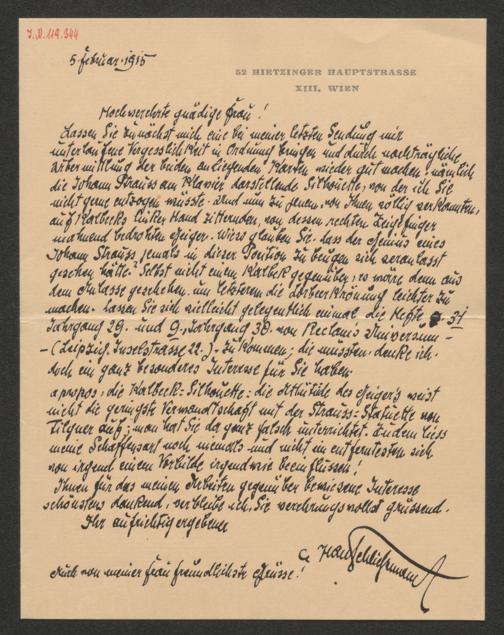 J.N. 119.344
5. Februar 1915
52 HIETZINGER HAUPTSTRASSE
XIII, WIEN
Hochverehrte gnädige Frau!
Lassen Sie zunächst mich eine bei meiner letzten Sendung mir
unterlaufene Vergesslichkeit in Ordnung bringen und durch nachträgliche
Übermittlung der beiden anliegenden Karten wieder gut machen: nämlich
die Johann Strauss am Klavier darstellende Silhouette, von der ich Sie
nicht gerne entzogen müsste. Und nun zu jenem, von Ihnen völlig verkannten,
auf Kalbecks linker Hand zitternden, von dessen rechten Zeigefinger
mahnend bedrohten Geiger. Wieso glauben Sie, dass der Genius eines
Johann Strauss jemals in dieser Position zu beugen sich veranlasst
gesehen hätte? Selbst nicht einem Kalbeck gegenüber; es wäre denn aus
dem Anlasse geschehen, um letzterem die Lorbeerkrönung leichter zu
machen. Lassen Sie sich vielleicht gelegentlich einmal die Hefte 31
Jahrgang 29. und 9. Jahrgang 30 von Reclams Universum -
- (Leipzig, Inselstrasse 22.) - zukommen; die müssten, denke ich,
doch ein ganz besonderes Interesse für Sie haben.
Apropos, die Kalbeck-Silhouette: die des Geiger's weist
nicht die geringste Verwandtschaft mit der Strauss-Statuette von
Tilgner auf; man hat Sie da ganz falsch unterrichtet. Zudem liess
meine Schaffensart noch niemals und nicht im entferntesten sich
von irgend einem Vorbilde irgendwie beeinflussen!
Ihnen für das meinen Arbeiten gegenüber bewiesene Interesse
schönstens dankend, verbleibe ich, Sie verehrungsvollst grüssend.
Ihr aufrichtig ergebener
Hans Schliessmann
Auch von meiner Frau freundlichste Grüsse!